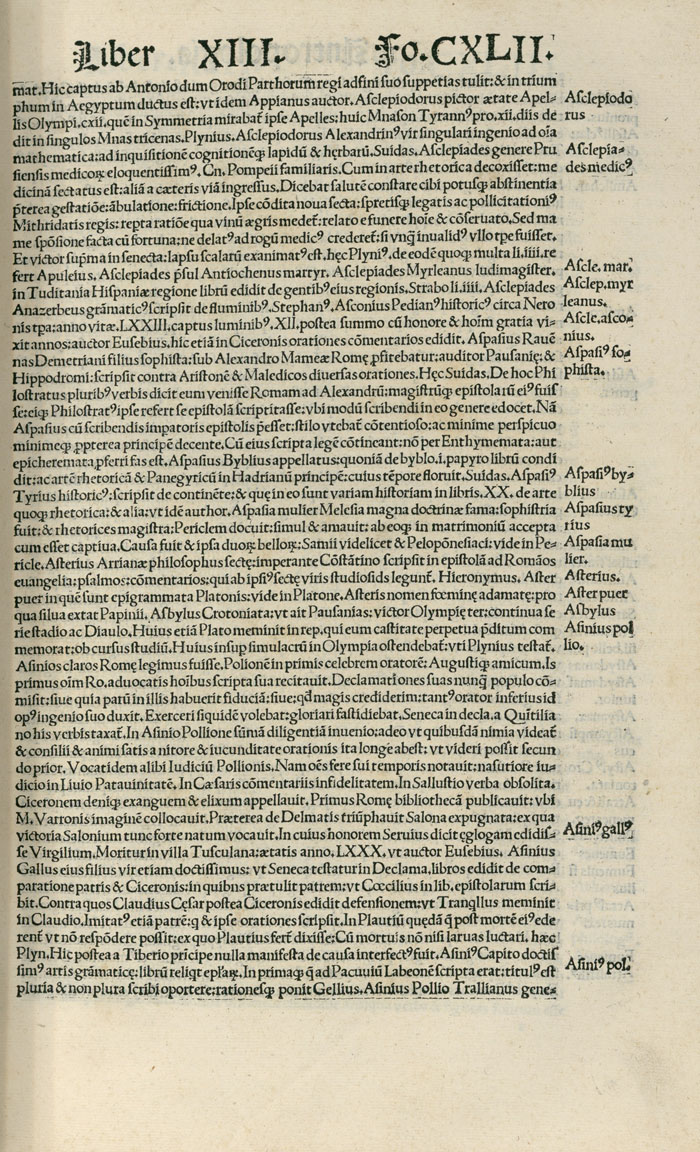 Liber XIII. Fo.CXLII.
mat. Hic captus ab Antonio dum Orodi Parthorum regi adfini suo suppetias tulit: & in trium
phum in Aegyptum ductus est: vt idem Appianus auctor. Asclepiodorus pictor ætate Apel-
lis Olympi. cxii. quē in Symmetria mirabat ipse Apelles: huic Mnason Tyrannꝰ pro. xii. diis de
dit in singulos Mnas tricenas. Plynius. Asclepiodorus Alexandrinꝰ vir singulari ingenio ad oīa
mathematica: ad inquisitionē cognitionēqꝫ lapidū & hęrbarū. Suidas. Asclepiades genere Pru
siensis medicoꝝ eloquentissimꝰ. Cn. Pompeii familiaris. Cum in arte rhetorica decoxisset: me
dicinā sectatus est: aliā a cæteris viā ingressus. Dicebat salutē constare cibi potusqꝫ abstinentia
p̄terea gestatiōe: ābulatione: frictione. Ipse cōdita noua secta: spretisqꝫ legatis ac pollicitationiꝰ
Mithridatis regis: repta ratiōe qua vinū ægris medet: relato e funere hoīe & cōseruato. Sed ma
me spōsione facta cū fortuna: ne delatꝰ ad rogū medicꝰ crederet: si vnꝗ inualidꝰ vllo tpe fuisset.
Et victor supma in senecta: lapsu scalarū exanimatꝰ est. hęc Plyniꝰ. de eodē quoqꝫ multa li. iiii. re
fert Apuleius. Asclepiades p̄sul Antiochenus martyr. Asclepiades Myrleanus ludimagister.
in Tuditania Hispaniæ regione librū edidit de gentibꝰ eius regionis. Strabo li. iiii. Asclepiades
Anazerbeus grāmaticꝰ scripsit de fluminibꝰ. Stephanꝰ. Asconius Pedianꝰ historicꝰ circa Nero
nis tpa: anno vitæ. LXXIII. captus luminibꝰ. XII. postea summo cū honore & hoīm gratia vi-
xit annos: auctor Eusebius. hic etiā in Ciceronis orationes cōmentarios edidit. Aspasius Rauē
nas Demetriani filius sophista: sub Alexandro Mameæ Romę ꝓfitebatur: auditor Pausanię: &
Hippodromi: scripsit contra Aristonē & Maledicos diuersas orationes. Hęc Suidas. De hoc Phi
lostratus pluribꝰ verbis dicit eum venisse Romam ad Alexandrū: magistrūqꝫ epistolarū eiꝰ fuis
se: eiqꝫ Philostratꝰ ipse refert se epistolā scriptitasse: vbi modū scribendi in eo genere edocet. Nā
Aspasius cū scribendis impatoris epistolis p̄esset: stilo vtebat cōtentioso: ac minime perspicuo
minimeqꝫ ꝓpterea principē decente. Cū eius scripta legē cōtineant: nō per Enthymemata: aut
epicheremata ꝓferri fas est. Aspasius Byblius appellatus: quoniā de byblo .i. papyro librū condi
dit: ac artē rhetoricā & Panegyricū in Hadrianū principē: cuius tēpore floruit. Suidas. Aspasiꝰ
Tyrius historicꝰ: scripsit de continēte: & quę in eo sunt variam historiam in libris. XX. de arte
quoqꝫ rhetorica: & alia: vt idē author. Aspasia mulier Melesia magna doctrinæ fama: sophistria
fuit: & rhetorices magistra: Periclem docuit: simul & amauit: ab eoqꝫ in matrimoniū accepta
cum esset captiua. Causa fuit & ipsa duoꝝ belloꝝ: Samii videlicet & Peloponēsiaci: vide in Pe-
ricle. Asterius Arrianæ philosophus sectę: imperante Cōstātino scripsit in epistolā ad Romāos
euangelia: psalmos: cōmentarios: qui ab ipsiꝰ sectę viris studiosis legunt. Hieronymus. Aster
puer in quē sunt epigrammata Platonis: vide in Platone. Asteris nomen fœminę adamatę: pro
qua silua extat Papinii. Asbylus Crotoniata: vt ait Pausanias: victor Olympię ter: continua se
rie stadio ac Diaulo. Huius etiā Plato meminit in rep. qui eum castitate perpetua p̄ditum com
memorat: ob cursus studiū. Huius insup simulacrū in Olympia ostendebat: vti Plynius testat.
Asinios claros Romę legimus fuisse. Polionē in primis celebrem oratorē: Augustiqꝫ amicum. Is
primus oīm Ro. aduocatis hoībus scripta sua recitauit. Declamationes suas nunꝗ populo cō-
misit: siue quia parū in illis habuerit fiduciā: siue: qd magis crediderim: tantꝰ orator inferius id
opꝰ ingenio suo duxit. Exerceri siquidē volebat: gloriari fastidiebat. Seneca in decla. a Quītilia
no his verbis taxat. In Asinio Pollione sūmā diligentiā inuenio: adeo vt quibusdā nimia videat
& consilii & animi satis a nitore & iucunditate orationis ita longe abest: vt videri possit secun
do prior. Vocat idem alibi Iudiciū Pollionis. Nam oēs fere sui temporis notauit: nasutiore iu-
dicio in Liuio Patauinitatē. In Cæsaris cōmentariis infidelitatem. In Sallustio verba obsolita.
Ciceronem deniqꝫ exanguem & elixum appellauit. Primus Romę bibliothecā publicauit: vbi
M. Varronis imaginē collocauit. Præterea de Delmatis triūphauit Salona expugnata: ex qua
victoria Salonium tunc forte natum vocauit. In cuius honorem Seruius dicit ęglogam edidis-
se Virgilium. Moritur in villa Tusculana: ætatis anno. LXXX. vt auctor Eusebius. Asinius
Gallus eius filius vir etiam doctissimus: vt Seneca testatur in Declama. libros edidit de com-
paratione patris & Ciceronis: in quibns prætulit patrem: vt Cœcilius in lib. epistolarum scri-
bit. Contra quos Claudius Cęsar postea Ciceronis edidit defensionem: vt Tranqllus meminit
in Claudio. Imitatꝰ etiā patrē: q & ipse orationes scripsit. In Plautiū quędā q post mortē eiꝰ ede
rent vt nō respōdere possit: ex quo Plautius fert dixisse: Cū mortuis nō nisi laruas luctari. hæc
Plyn. Hic postea a Tiberio prīcipe nulla manifesta de causa interfectꝰ fuit. Asiniꝰ Capito doctis
simꝰ artis grāmaticę: librū reliqt ep̄laꝝ. In primaqꝫ q ad Pacuuiū Labeonē scripta erat: titulꝰ est
pluria & non plura scribi oportere: rationesqꝫ ponit Gellius. Asinius Pollio Trallianus gene-
Asclepiodo
rus
Asclepia-
des medicꝰ
Ascle. mar.
Asclep. myr
leanus.
Ascle. asco-
nius.
Aspasiꝰ so-
phista.
Aspasiꝰ by-
blius
Aspasius ty
rius
Aspasia mu
lier.
Asterius.
Aster puer
Asbylus
Asinius pol
lio.
Asiniꝰ gallꝰ
Asiniꝰ pol.